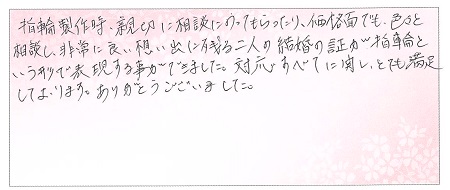 指輪製作時、親切に相談にのってもらったり、価格面でも、色々と
相談し、非常に良い想い出に残る二人の結婚の証が指輪と
いう形で表現する事ができました。対応すべてに関し、とても満足
しております。ありがとうございました。